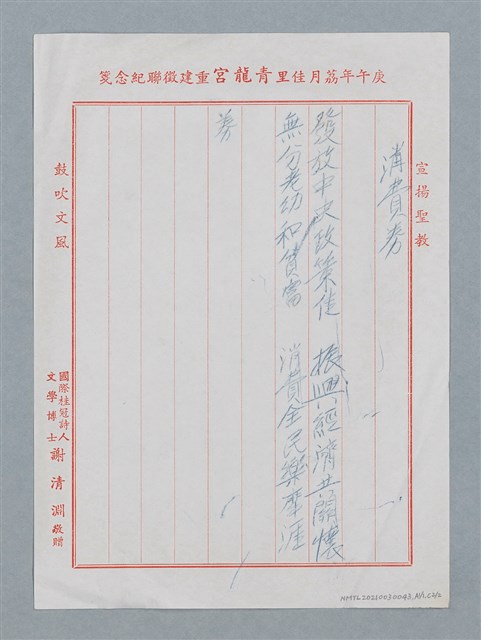 庚午年荔月佳里青龍宮重建徵聯紀念箋
宣揚聖教
消費券
發放中央政策佳 振興經濟共關懷
無分老幼和貧富 消費全民樂無涯
券
鼓吹文風
國際桂冠詩人
文學博士
謝清淵敬贈
NMTL20210030043_A/1.C2/2